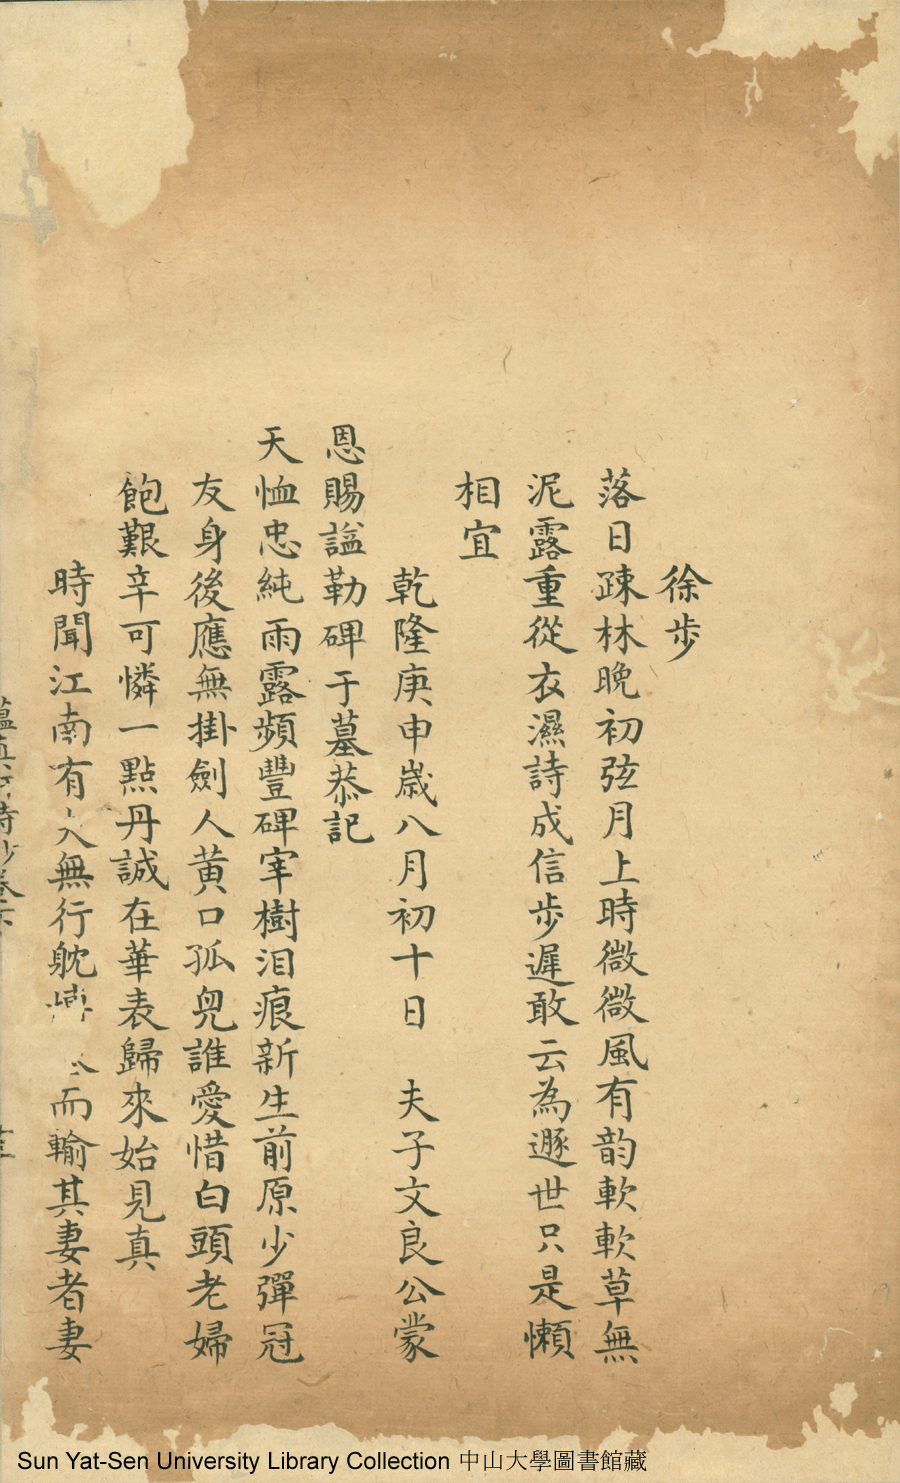 徐步
落日疎林晚初弦月上時微微風有韵軟軟草無
泥露重從衣濕詩成信步遲敢云為遯世只是懶
相宜
乾隆庚申歲八月初十日 夫子文良公蒙
恩賜諡勒碑于墓恭記
天恤忠純雨露頻豐碑宰樹泪痕新生前原少彈冠
友身後應無掛劍人黄口孤兒誰愛惜白頭老婦
飽艱辛可憐一點丹誠在華表歸來始見真
時聞江南有人無行躭博 而輸其妻者妻
蘊真 詩抄卷
Sun Yat-Sen University Library Collection 中山大學圖書館藏